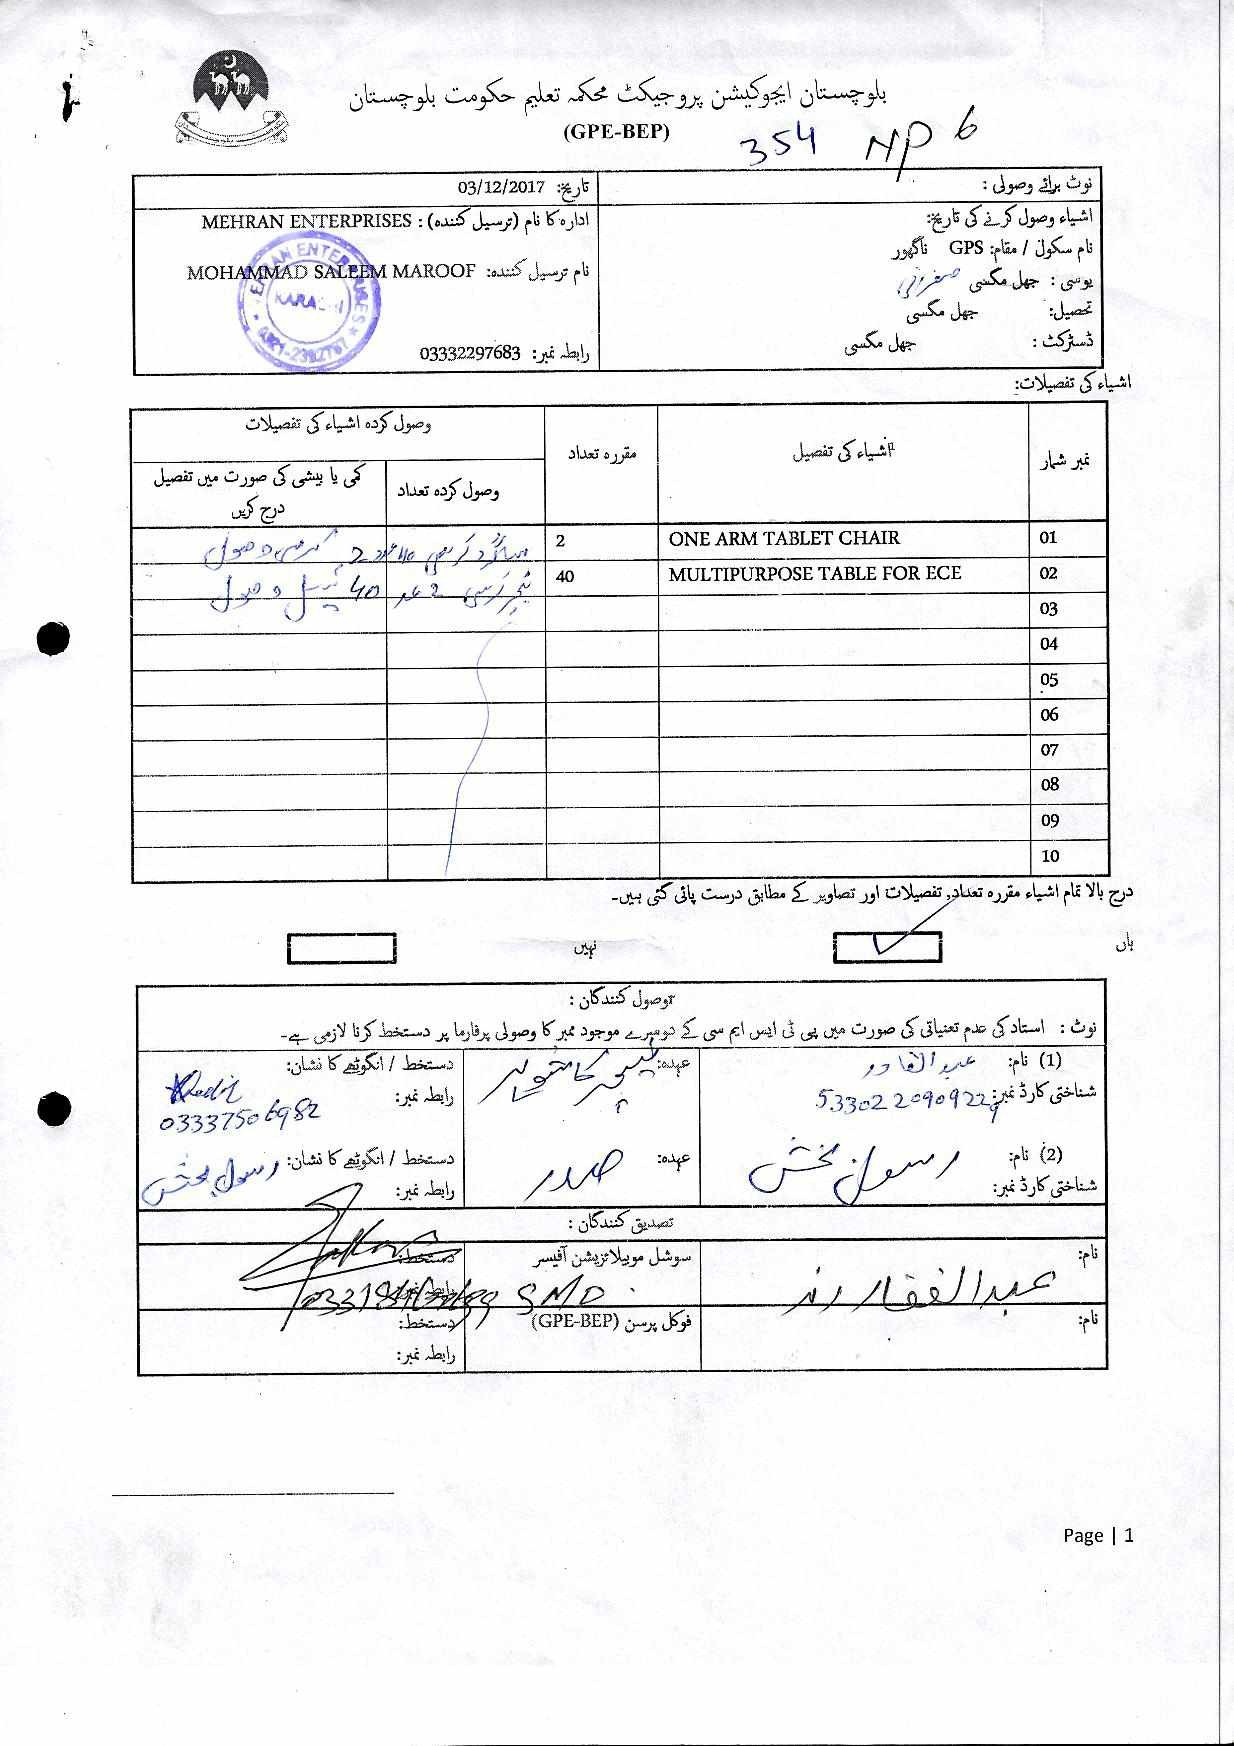 بلوچستان ایجوکیشن پروجیکٹ محکمہ تعلیم حکومت بلوچستان
(GPE-BEP)
354 NP 6
نوٹ برائے وصولی :
تاریخ: 03/12/2017
اشیاء وصول کرنے کی تاریخ:
نام سکول / مقام: GPS ناگھور
یوسی : جھل مگسی
تحصیل: جھل مگسی
ڈسٹرکٹ : جھل مگسی
ادارہ کا نام (ترسیل کنندہ) : MEHRAN ENTERPRISES
نام ترسیل کنندہ: MOHAMMAD SALEEM MAROOF
رابطہ نمبر: 03332297683
MEHRAN ENTERPRISES
KARACHI
اشیاء کی تفصیلات:
نمبر شمار
اشیاء کی تفصیل
مقررہ تعداد
وصول کردہ اشیاء کی تفصیلات
وصول کردہ تعداد
کمی یا بیشی کی صورت میں تفصیل درج کریں
01 ONE ARM TABLET CHAIR 2
02 MULTIPURPOSE TABLE FOR ECE 40
ٹیچر کرسی 2 عدد 40 ٹیبل وصول
03
04
05
06
07
08
09
10
درج بالا تمام اشیاء مقررہ تعداد، تفصیلات اور تصاویر کے مطابق درست پائی گئی ہیں۔
ہاں
نہیں
وصول کنندگان :
نوٹ : استاد کی عدم تعیناتی کی صورت میں پی ٹی ایس ایم سی کے دوسرے موجود ممبر کا وصولی پرفارما پر دستخط کرنا لازمی ہے۔
(1) نام: عبدالقادر
شناختی کارڈ نمبر:
عہدہ:
دستخط / انگوٹھے کا نشان:
رابطہ نمبر: 03337506982
(2) نام: رسول بخش
شناختی کارڈ نمبر:
عہدہ: صدر
دستخط / انگوٹھے کا نشان: رسول بخش
رابطہ نمبر:
تصدیق کنندگان :
نام: عبدالغفار رند
سوشل موبیلائزیشن آفیسر
SMO
دستخط:
رابطہ نمبر:
نام:
فوکل پرسن (GPE-BEP)
دستخط:
رابطہ نمبر:
Page | 1